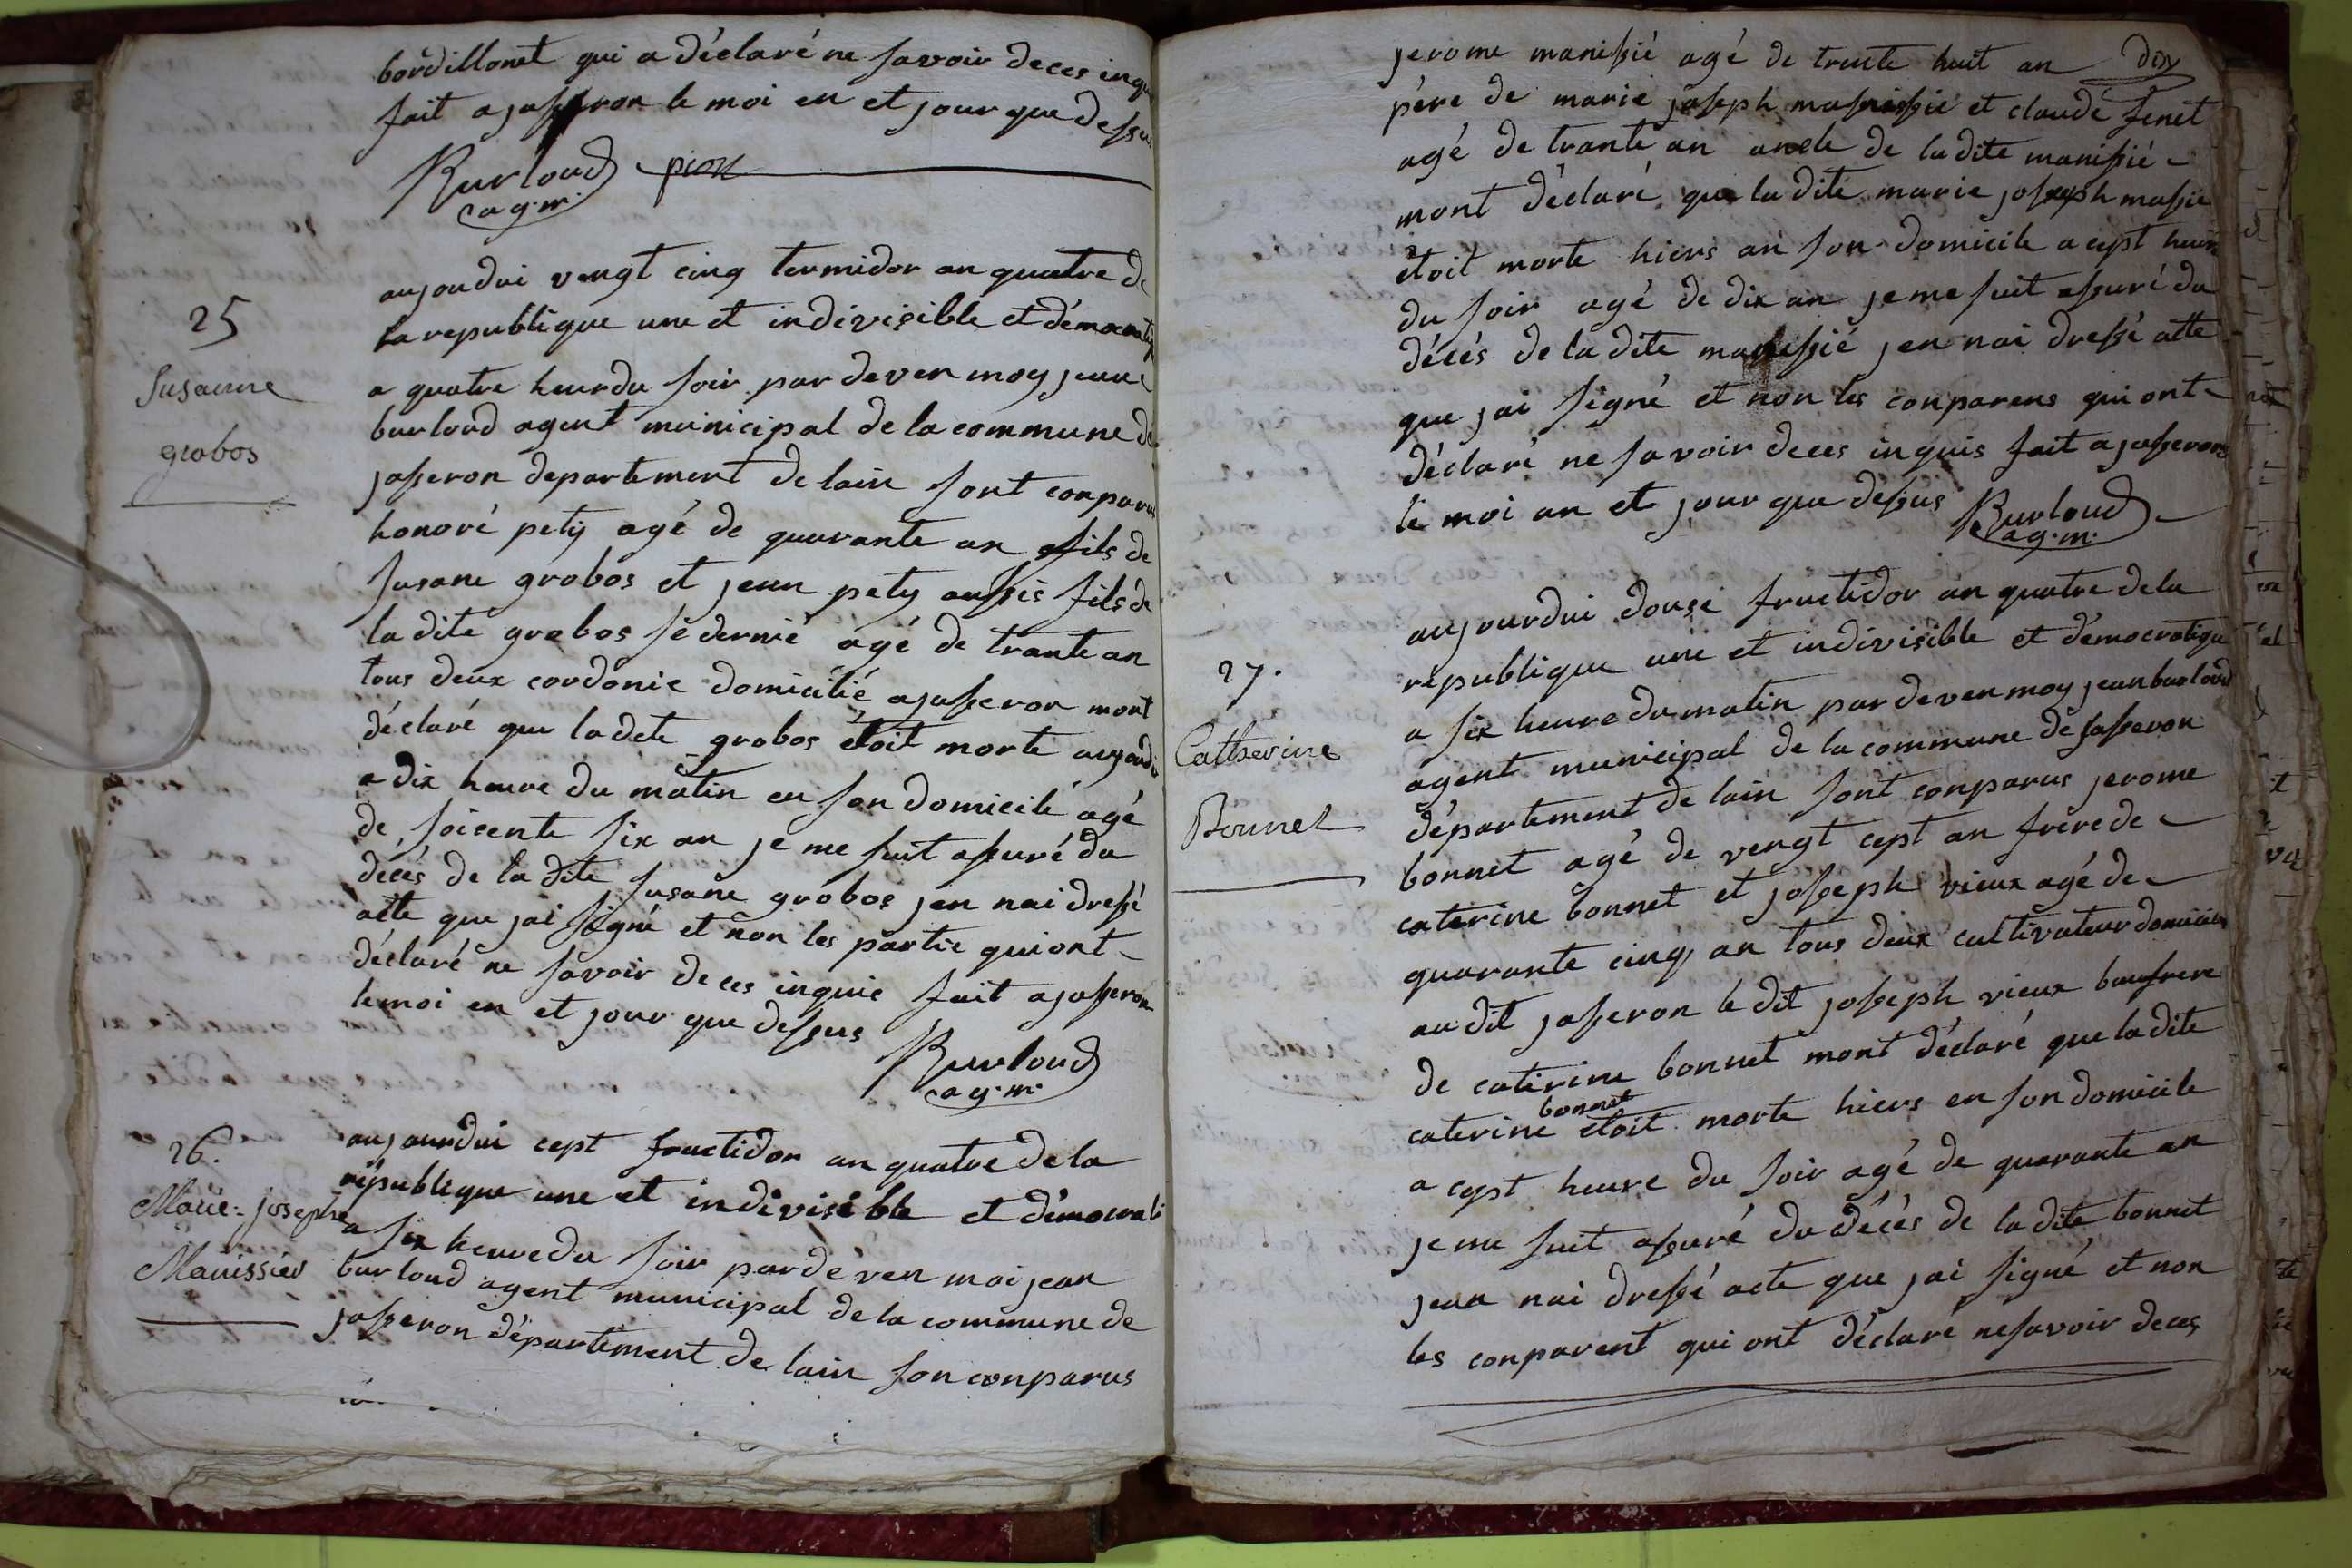 bordillonet qui a déclaré ne savoir de ces inqui
fait a jasseron le moi en et jour que dessus
Burloud pion
ag.m.
25
Susanne
grobos
aujoudui vengt cinq termidor an quatre de
la republique une et indivisible et démocratiq
a quatre heur du soir par deven moy jean
burloud agent municipal de la commune de
jasseron departement de lain sont conparus
honoré pety agé de quarante an fils de
susane grobos et jean pety aussis fils de
la dite grobos sé dernié agé de trante an
tous deux cordonié domicilié a jasseron mont
déclaré que la dete grobos étoit morte aujoudui
a dix heure du matin en son domicilé agé
de soicente six an je me suit assuré du
décés de la dite susane grobos jen nai dressé
acte que jai signé et non les partie qui ont
déclaré ne savoir de ces inquie fait a jasseron
le moi en et jour que dessus
Burloud
ag.m.
26.
Marie-josephe
Manissier
aujourdui cept fructidor an quatre de la
république une et indivisible et démocrati
a six heure du soir pardéven moi jean
burloud agent municipal de la commune de
jasseron département de lain son conparus
dix
jerome manissié agé de trente huit an
père de marie joseph manissié et claude fenet
agé de trante an oncle de la dite manissié
mont déclaré que la dite marie joseph massié
étoit morte hiers an son domicile a cept heure
du soir agé de dix an je me suit assuré du
décés de la dite manissié jen nai dressé acte
que jai signé et non les conparens qui ont
déclaré ne savoir de ces inquis fait a jasseron
le moi an et jour que dessus Burloud
ag.m.
27.
Catherine
Bonnet
aujourdui douse fructidor an quatre de la
république une et indivisible et démocratique
a six heure du matin pardeven moy jean burloud
agent municipal de la commune de jasseron
département de lain sont conparus jerome
bonnet agé de vengt cept an frère de
caterine bonnet et josseph vieux agé de
quarante cinq an tous deux cultivateur domicilié
au dit jasseron le dit josseph vieux baufrere
de caterine bonnet mont déclaré que la dite
caterine bonnet étoit morte hiers en son domicile
a cept heure du soir agé de quarante an
je me suit assuré du décés de la dite bonnet
jean nai dressé acte que jai signé et non
les conparent qui ont déclaré ne savoir de ces